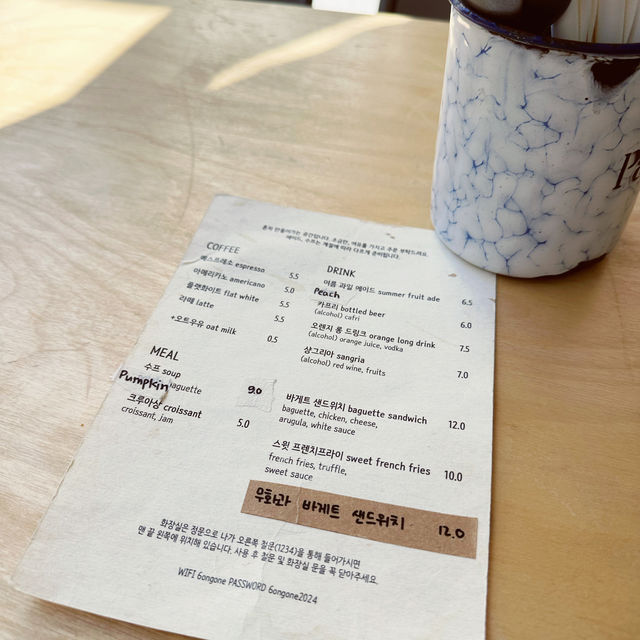 혼자 만들어가는 공간입니다. 조금만, 여유를 가지고 주문 부탁드려요.
에이드, 수프는 계절에 따라 다르게 준비됩니다.
COFFEE
에스프레소 espresso 5.5
아메리카노 americano 5.0
플랫화이트 flat white 5.5
라떼 latte 5.5
+오트우유 oat milk 0.5
DRINK
여름 과일 에이드 summer fruit ade 6.5
Peach
카프리 bottled beer 6.0
(alcohol) cafri
오렌지 롱 드링크 orange long drink 7.5
(alcohol) orange juice, vodka
샹그리아 sangria 7.0
(alcohol) red wine, fruits
MEAL
수프 soup 9.0
Pumpkin baguette
크루아상 croissant 5.0
croissant, jam
바게트 샌드위치 baguette sandwich 12.0
baguette, chicken, cheese,
arugula, white sauce
스윗 프렌치프라이 sweet french fries 10.0
french fries, truffle,
sweet sauce
무화과 바게트 샌드위치 12.0
화장실은 정문으로 나가 오른쪽 철문(1234)을 통해 들어가시면
맨 끝 왼쪽에 위치해 있습니다. 사용 후 철문 및 화장실 문을 꼭 닫아주세요.
WIFI 6ongone PASSWORD 6ongone2024